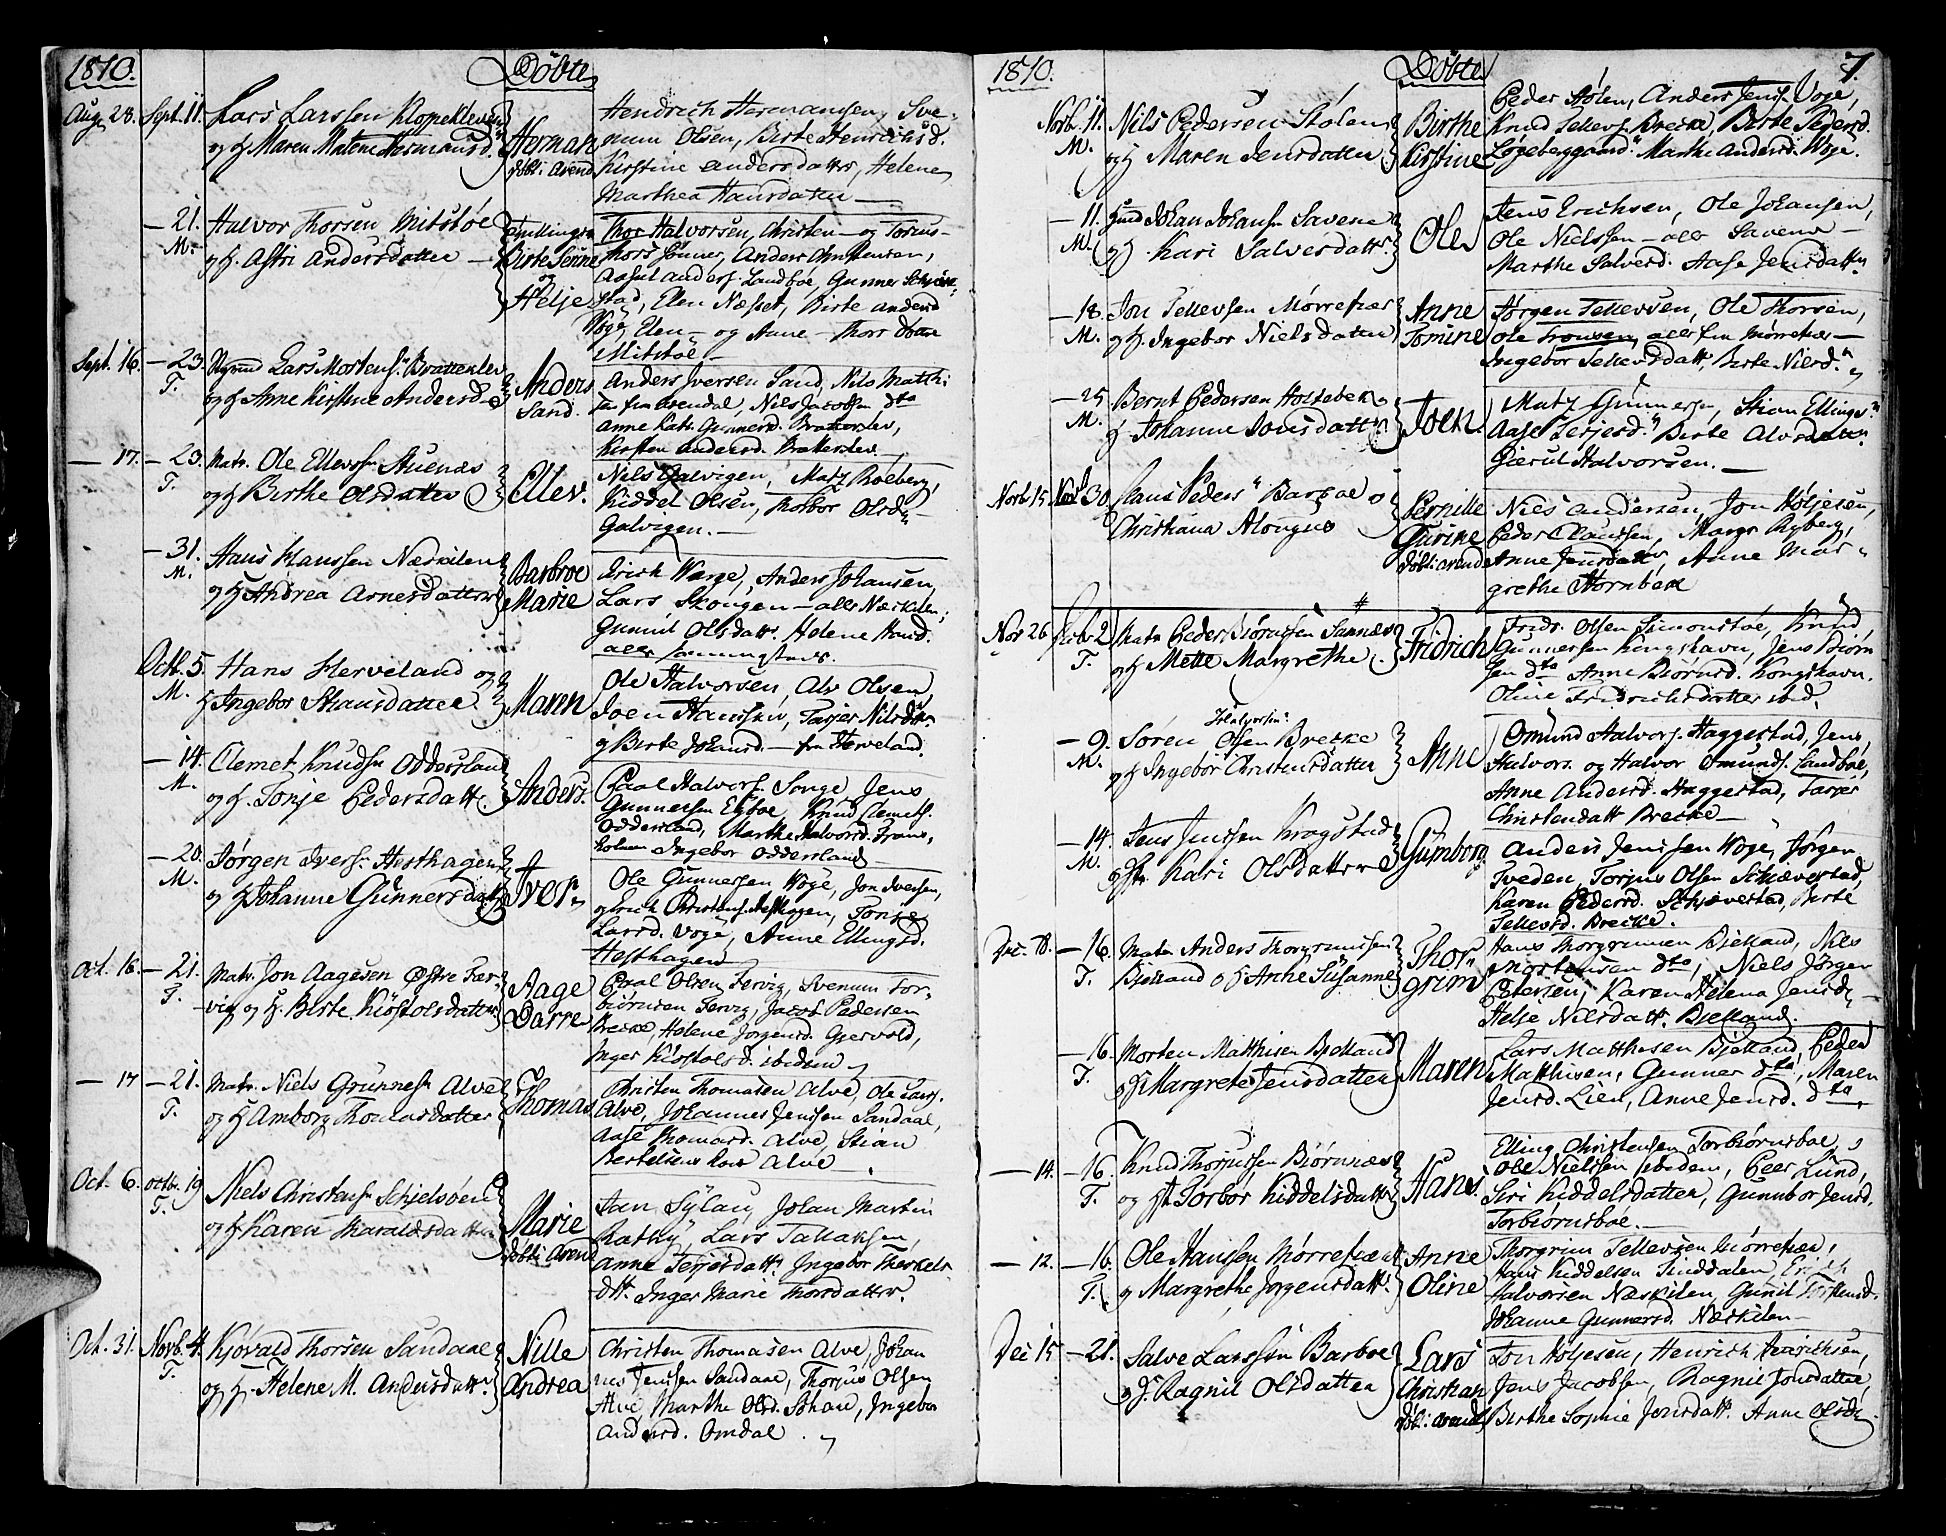 1810. Döbte
Aug 28. Sept. 11. Lars Larssen Klopekleven
og H Maren Matene Hermansd.
Herman
döbt: Arend.
Hendrich Hermansen, Sve-
num Olsen, Birte Henrichsd.
Kirstine Andersdatter, Helene
Marthea Hansdatter
— 21. Halvor Thorsen Mitstöe
M. og H. Astri Andersdatter
Tvillinger
Birte Serine
og
Helje
Thor Halvorsen, Christen — og Torius —
Thors Sønner, Anders Christensen,
Aasul Anders. Landboe, Gunner
stad, Elen Næsset, Birte Andersd
Voge, Elen — og Anne — Thors Dottre
Mitstöe —
Sept. 16. — 23. Lars Mortens. Brattenlev
T. og H Anne Kirstine Andersd.
Anders
Sand.
Anders Iversen Sand, Nils Matthi
sen fra Arendal, Nils Jacobsen dto
Anne Katr. Gunnersd. Brattenlev,
Kirsten Andersd. Brattenlev,
— 17. — 23. Matr. Ole Ellevs. Stuenæs
T. og H Birthe Olsdatter
Ellev.
Nils Galvigen, Matz Roeberg,
Kiddel Olsen, Thorbor Olsd
Galvigen. —
— 31. Hans Hanssen Næskilen
M. og H Andrea Arnesdatter
Barbroe
Marie
Erich Wærge, Anders Johansen,
Lars Skougen — alle Næskilen;
Gunnil Olsdatt. Helene
alle sammesteds.
Octb. 5. Hans Herveland og
M. H Ingebor Hansdatter
Maren
Ole Halvorsen, Alv Olsen,
Joen Hanssen, Tarjer Nilsd
og Birte Johansd. — fra Herveland.
— 14. Clemet Knuds. Oddersland
M. og H. Tonje Pedersdatt.
Anders.
Paal Halvors. Songe, Jens
Gunnersen Egboe, Knud Clemets.
Oddersland, Marthe Halvorsd. Frans,
holmen Ingebor Oddersland —
— 20. Jørgen Ivers. Hesthagen
M. og H Johanne Gunnersdatt
Iver.
Ole Gunnersen Woge, Jon Iversen,
og Erich Christens. Hesthagen, Tonje
Larsd. Voge, Anne Ellingsd.
Hesthagen
Oct. 16. — 21. Matr. Jon Aagesen Østre Fær-
T. vig og H. Berte Kiöstolsdatter
Aage
Darre
Paal Olsen Fervig, Svenum Tor-
biörnsen Fervig, Jacob Pedersen
Brekke, Helene Jørgensd. Gjervold,
Inger Kiöstolsd. ibidem
— 17 — 21. Matr. Niels Grunnes. Alve
T. og H Amborg Thomasdatter
Thomas
Christen Thomasen Alve, Ole Lars.
Alve, Johannes Jenssen Sandaal,
Aase Thomasd. Alve, Stian
Bertelsens kone Alve —
Oct. 6. Octb. 19 Niels Christens. Schjelsöen
T. og H Karen Haraldsdatter
Marie
döbt: Arend
Jan Sylau, Johan Martin
Rathy, Lars Tallaksen,
Anne Terjesdatt. Ingebor Therkels
dtt. Inger Marie Thorsdatter.
Oct. 31. Novb. 4. Kjövald Thorsen Sandaae
T. og H. Helene M. Andersdatt.
Nille
Andrea
Christen Thomasen Alve, Johan
nes Jenssen Sandaae, Thorjus Olsen
Alve Marthe Olsd. Johan, Ingebor
Andersd. Omdal.
1810. Döbte 7.
Novb. 11. Nils Pedersen Stölen
M. og H Maren Jensdatter
Birthe
Kirstine
Peder Stölen, Anders Jens. Voge,
Knud Tellevs. Brecke, Birte Pedersd.
Løgeberggaard. Marthe Andersd. Woge.
— 11. Gmd Johan Johans. Savene
M. og H. Kari Salvesdatt.
Ole
Jens Erichsen, Ole Johansen,
Ole Nielssen — alle Savene —
Marthe Salvesd. Aase Jensdatter
— 18. Jon Tellevsen Mørrefiær
M. og H. Ingebor Nielsdatter
Anne
Tomine
Jørgen Tellevsen, Ole Thorsen,
Ole Tronsen, alle fra Mörrefiær —
Ingebor Tellevsdatt, Birte Nilsd.
— 25 Bernt Pedersen Holtebek og
M. H Johanne Jonsdatt
Joen.
Matz Gunnersen, Stian Ellings
Aase Terjesd. Birte Alvsdatter
Gierul Halvorsen. —
Novb. 15. Novb. 30. Claus Peders. Barboe og
Christiana Alongus
Pernille
Gurine
döbt: Arend
Niels Andersen, Jon Höljesen,
Peder Claussen, Marge Ryberg,
Anne Jensdatt, Anne Mar-
grethe Hornbek
Nov 26. Decb. 2. Matr. Peder Biörnsen Sannæs
T. og H Mette Margrethe
Fridrich
Fridr. Olsen Simonstöe, Knud
Gunnersen Kongshavn, Jens Biörn
sen dto Anne Biörnsd. Kongshavn.
Oline Fridrichsdatter ibid.
— 9. Søren Olsen Brecke
M. og H Ingebor Christensdatter
Anne
Omund Halvors. Haggestad, Jens
Halvors. og Halvor Omunds. Landboe,
Anne Andersd. Haggestad, Tarjer
Christendatt Brecke —
— 14. Jens Jenssen Krogstad
M. og H. Kari Olsdatter
Gunborg
Anders Jenssen Woge, Jørgen
Tveden, Torjus Olsen Schævestad,
Karen Pedersd. Schiævestad, Birte
Tellevsd. Brecke.
Dec. 10. — 16. Matr. Anders Thorgrimsen
T. Bjelland og H Anne Susanne
Thor
grim
Hans Thorgrimsen Bjelland, Nils
Mortensen dto, Niels Jörgen
Petersen, Karen Helena Jensd —
Helje Nilsdatt. Bjelland.
— 16. Morten Matthisen Bjelland
T. og H Margrete Jensdatter
Maren
Lars Matthisen Bjelland, Peder
Matthisen, Gunner dto, Maren
Jensd. Lien, Anne Jensd. dto
— 14. — 16 Knud Thorjussen Björnnæs
T. og H Torbor Kiddelsdatter
Hans.
Elling Christensen Torbiörnsboe,
Ole Nielssen ibidem, Peer Lund,
Siri Kiddelsdatter, Gunnbor Jensd.
Torbiörnsboe. —
— 12. — 16. Ole Hanssen Mørrefiær
T. og Margrethe Jørgensdatt.
Anne
Oline
Thorgrim Tellevsen Mörrefiær,
Hans Kiddelsen Sinddalen, Erich
Halvorsen Næskilen, Gunil Torstensd.
Johanne Gunnersd. Næskilen —
Dec 15 — 21. Salve Larssen Barboe
og H. Ragnil Olsdatter
Lars
Christian
döbt: Arend
Jon Höljesen, Henrich Henrichsen,
Jens Jacobsen, Ragnil Jonsdatter,
Birthe Sophie Jensdatt. Anne Olsd.